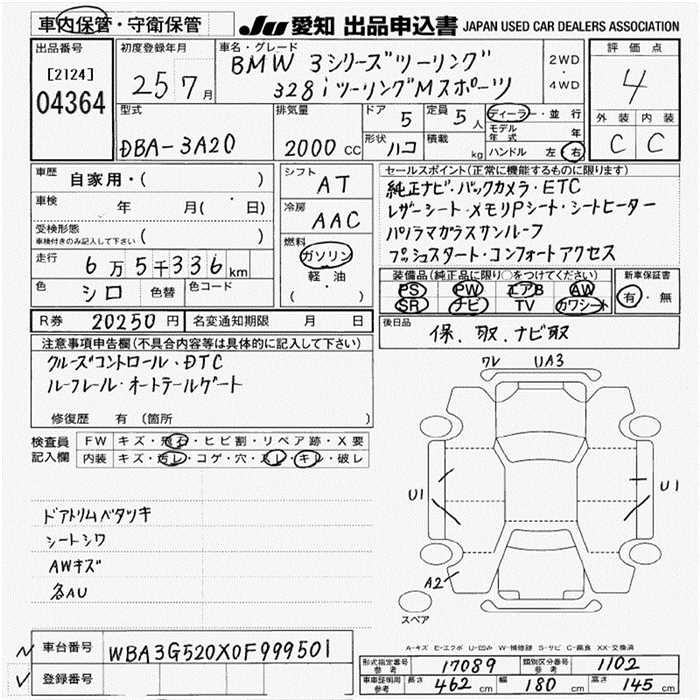 車内保管・守衛保管
JU 愛知 出品申込書 JAPAN USED CAR DEALERS ASSOCIATION
出品番号
[2124]
04364
初度登録年月
25 7月
車名・グレード
BMW 3シリーズツーリング
328iツーリングMスポーツ
2WD
・
4WD
評価点
4
外装 内装
C C
型式
DBA-3A20
排気量
2000 CC
ドア 5
定員 5人
形状 ハコ
積載 kg
ディーラー・並行
モデル年式 年
ハンドル 左 右
車歴 自家用・( )
車検 年 月( 日)
受検形態
車検付きのみ記入して下さい ( )
走行 6万5千336km
色 シロ 色替 色コード
シフト AT
冷房 AAC
燃料
ガソリン
軽・油
( )
セールスポイント(正常に機能するものに限ります)
純正ナビ・バックカメラ・ETC
レザーシート・メモリPシート・シートヒーター
パノラマガラスサンルーフ
プッシュスタート・コンフォートアクセス
装備品(純正品に限り○をつけてください)
PS PW エアB AW
SR ナビ TV カワシート
新車保証書
有・無
R券 20250円 名変通知期限 月 日
後日品 保、取、ナビ取
注意事項申告欄(不具合内容等は具体的に記入して下さい)
クルーズコントロール・DTC
ルーフレール・オートテールゲート
修復歴 有(箇所 )
検査員記入欄
FW キズ・飛石・ヒビ割・リペア跡・X要
内装 キズ・汚レ・コゲ・穴・スレ・キレ・破レ
ドアトリムベタツキ
シートシワ
AWキズ
各AU
ワレ UA3
U1
U1
A2
スペア
A-キズ E-エクボ U-凹み W-補修跡 S-サビ C-腐食 XX-交換済
車台番号 WBA3G520X0F999501
登録番号
形式指定番号 参考 17089 類別区分番号 参考 1102
車車証明用 参考 長さ 462 cm 幅 180 cm 高さ 145 cm